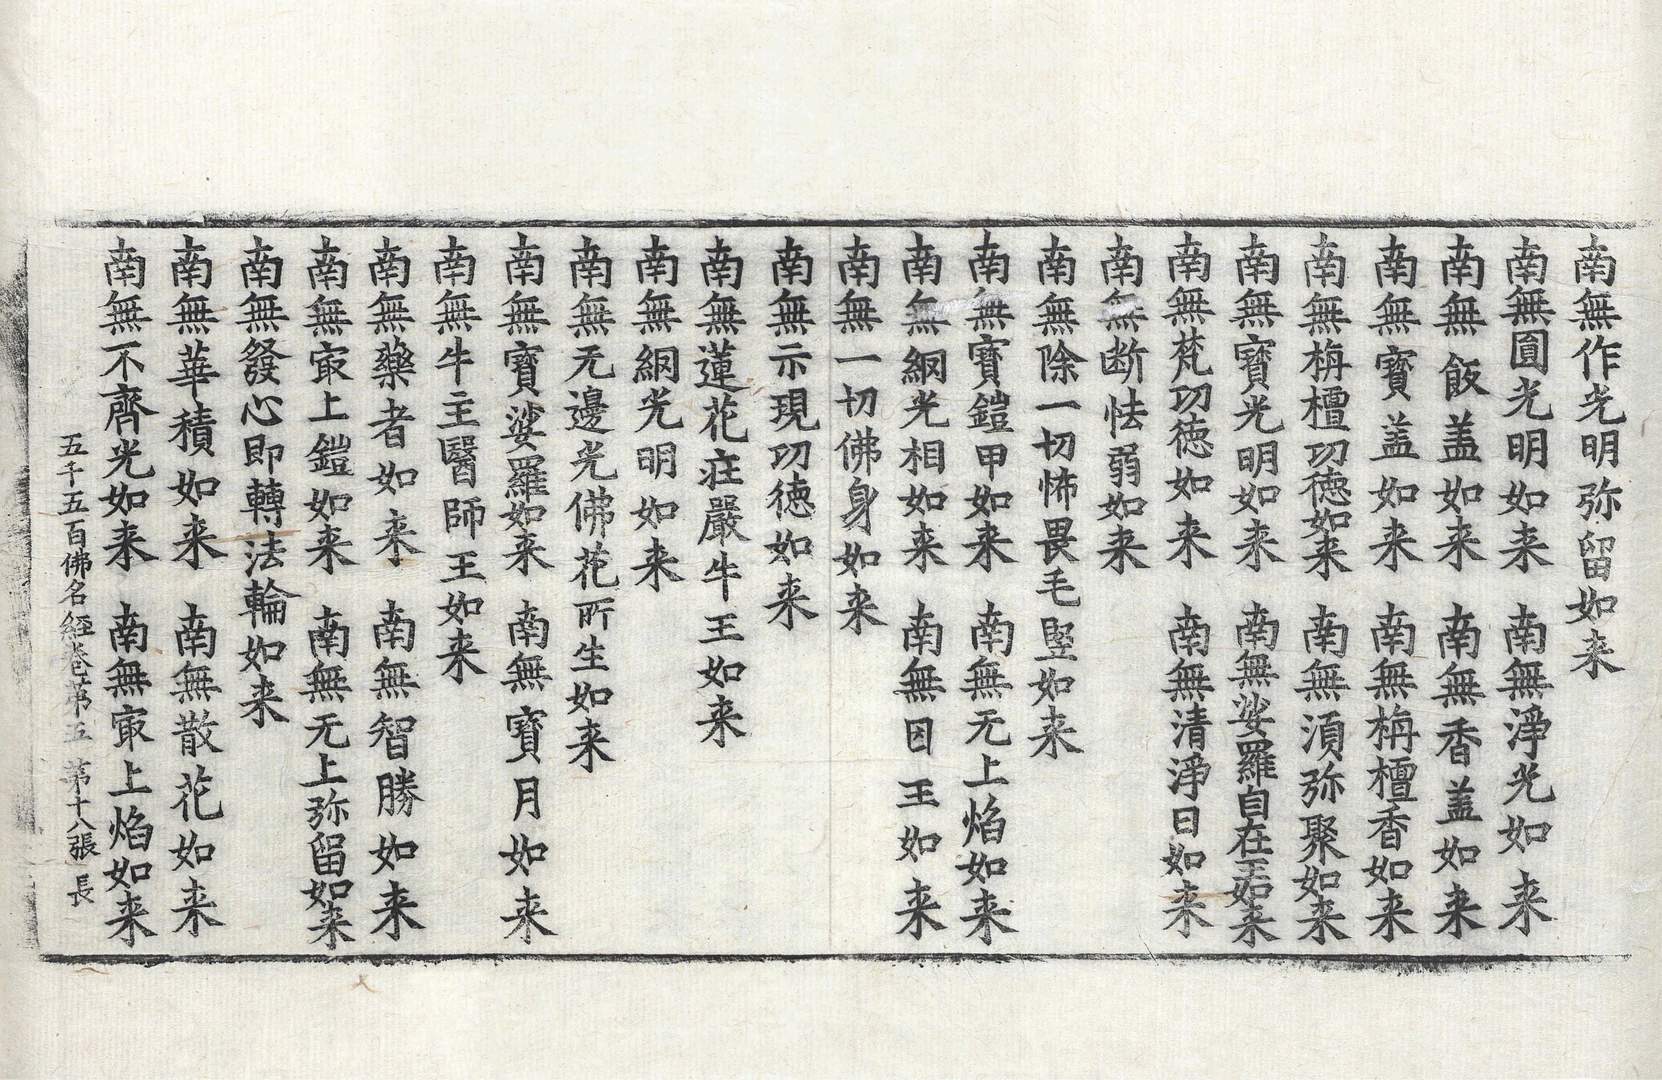 南無作光明弥留如来
南無圎光明如来 南無淨光如来
南無飯盖如来 南無香盖如来
南無寶盖如来 南無栴檀香如来
南無栴檀功德如来 南無湏弥聚如来
南無寶光明如来 南無娑羅自在王如来
南無梵功德如来 南無清淨日如来
南無断怯弱如来
南無除一切怖畏毛竪如来
南無寶鎧甲如来 南無无上焰如来
南無網光相如来 南無因王如来
南無一切佛身如来
南無示現功德如来
南無蓮花庄嚴牛王如来
南無網光明如来
南無无邊光佛花所生如来
南無寶娑羅如来 南無寶月如来
南無牛主醫師王如来
南無藥者如来 南無智勝如来
南無㝡上鎧如来 南無无上弥留如来
南無發心即轉法輪如来
南無華積如来 南無散花如来
南無不齊光如来 南無㝡上焰如来
五千五百佛名經卷第五 第十八張 長